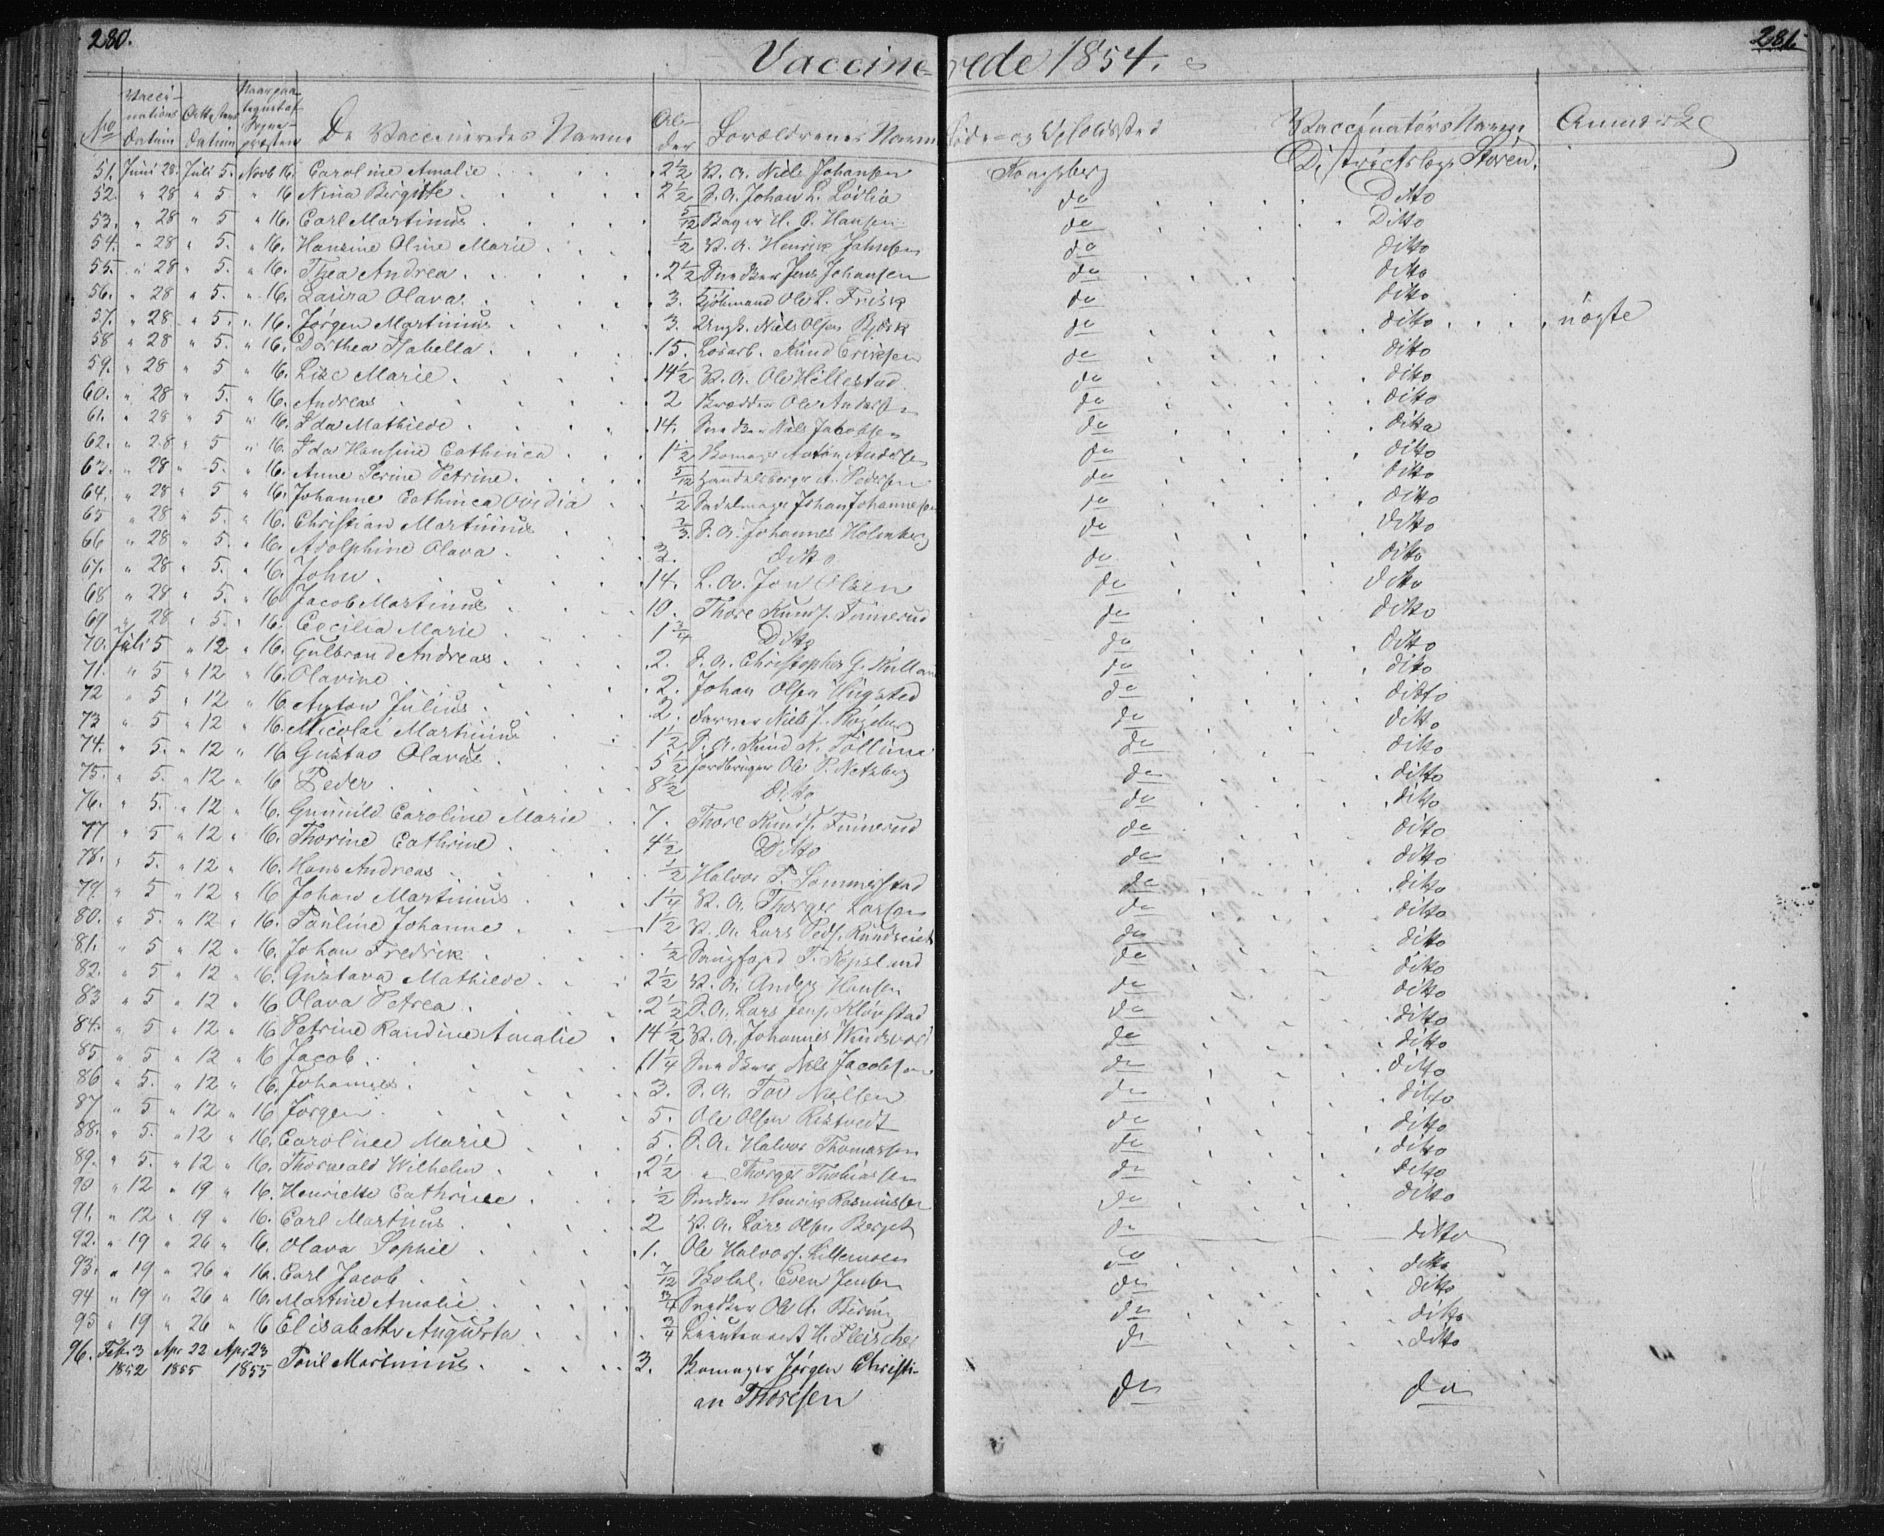 280. 281.
Vaccinerede 1854.
No Vaccinations Datum Attestens Datum De Vaccineredes Navne Alder Forældrenes Navne Føde- og Opholdssted Vaccinatørs Navne
51. Juni 28. Juli 5. Novb 16. Caroline Amalie 2½ B. A. Niels Johansen Kongsberg Districtslæge Støren.
52. " 28 " 5 " 16 Nina Birgitte 2½ S. A. Johan L. do Ditto
53. " 28 " 5 " 16. Carl Martinus 5/12 Bager H. Hansen do Ditto
54. " 28 " 5. " 16. Hansine Oline Marie ½ B. A. Henrik Johnsen do ditto
55. " 28 " 5. " 16. Thea Andrea 2½ Snedker Jens Johansen do ditto
56. " 28 " 5. " 16. Laura Olava 3. Kjøbmand Ole L. Frisk do ditto
57. " 28 " 5. " 16. Jørgen Martinius 3. Niels Olsen do ditto nægte
58 " 28 " 5. " 16. Dorthea Isabella 15. Løsarb. Knud Eriksen do ditto
59. " 28 " 5 " 16. Lise Marie 14½ B. A. Ole Hillestad do ditto
60. " 28 " 5. " 16. Andreas 2 Ole Andersen do ditto
61. " 28 " 5 " 16. Ida Mathilde 14. Snedker Niels Jacobsen do ditto
62. " 28 " 5 " 16. Ida Hansine Cathinca 1½ Anton Andersen do ditto
63. " 28 " 5. " 16. Anne Serine Petrine 5/12 Handelsborger A. Pedersen do ditto
64. " 28 " 5 " 16. Johanne Cathinca Ovidia ½ Sadelmager Johan Johannesen do ditto
65 " 28 " 5. " 16. Christian Martinius S. A. Johannes Holmberg do ditto
66 " 28 " 5. " 16. Adolphine Olava 3. ditto do ditto
67. " 28 " 5. " 16. John 14. L. A. Jon Olsen do ditto
68 " 28 " 5. " 16 Jacob Martinus 10. Thore Knuds. Finnerud do ditto
69 " 28 " 5. " 16. Cecilia Marie 1¾ Ditto do ditto
70. Juli 5 " 12 " 16. Gulbrand Andreas 2. S. A. Christopher G. do ditto
71. " 5 " 12 " 16. Olavine 2. Johan Olsen do ditto
72 " 5 " 12 " 16. Anton Julius 2. Farver Niels J. do ditto
73 " 5 " 12 " 16. Nicolai Martinius 1½ S. A. Knud K. do ditto
74. " 5. " 12 " 16 Gustav Olavus 5½ Jordbruger Ole P. Netzberg do ditto
75. " 5. " 12 " 16 Peder 8½ ditto do ditto
76. " 5. " 12 " 16. Gunnild Caroline Marie 7. Thore Knuds. Finnerud do ditto
77 " 5 " 12 " 16. Thorine Cathrine 4½ Ditto do ditto
78. " 5. " 12 " 16. Hans Andreas ½ Halvor T. Sommerstad do ditto
79. " 5 " 12 " 16 Johan Martinius 1¼ B. A. Thorger Larsen do ditto
80. " 5 " 12 " 16. Pauline Johanne 1½ B. A. Lars Peds. do ditto
81. " 5 " 12 " 16. Johan Fredrik ½ do ditto
82. " 5 " 12 " 16. Gustava Mathilde 2½ B. A. Anders Hansen do ditto
83 " 5 " 12 " 16 Olava Petrea 2½ S. A. Lars Jens. Kløvstad do ditto
84. " 5 " 12 " 16 Petrine Randine Amalie 14½ B. A. Johannes do ditto
85 " 5 " 12 " 16 Jacob 11¼ Snedker Niels Jacobsen do ditto
86 " 5. " 12 " 16. Johannes 3. S. A. Tov Nielsen do ditto
87 " 5 " 12 " 16 Jørgen 5. Ole Olsen Ristvedt do ditto
88. " 5. " 12 " 16. Caroline Marie 5. S. A. Halvor Thomassen do ditto
89. " 5. " 12 " 16. Thorwald Wilhelm 2½ " Thorger Thobiassen do ditto
90 " 12 " 19 " 16. Henriette Cathrine ½ Snedker Henrik Rasmussen do ditto
91. " 12 " 19 " 16. Carl Martinus 2 B. A. Lars Olsen Berget do ditto
92. " 19 " 26 " 16. Olava Sophie 1. Ole Halvors. Lillemoen do ditto
93. " 19 " 26 " 16. Carl Jacob 7/12 Even Jensen do ditto
94 " 19 " 26 " 16. Martine Amalie ¾ Snedker Ole A. do ditto
95 " 19 " 26 " 16 Elisabeth Augusta ¾ Lieutenant H. Fleischer do ditto
96. Feb. 3 1852 Apr 22 1855 Apr 23 1855 Poul Martinius 3. Jørgen Christi-
an Thoresen do do